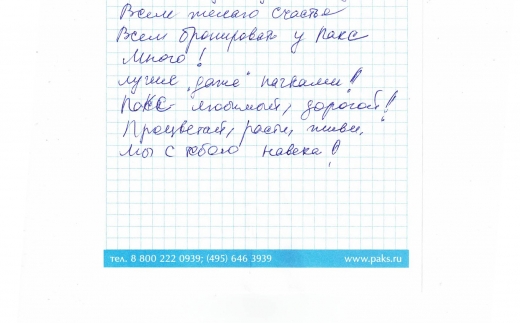 Всем желаю счастья
Всем бронировать у Пакс
Много!
лучше „даже" пачками!!
Пакс любимый, дорогой!
Процветай, расти, живи,
Мы с тобою навека!
тел. 8 800 222 0939; (495) 646 3939
www.paks.ru